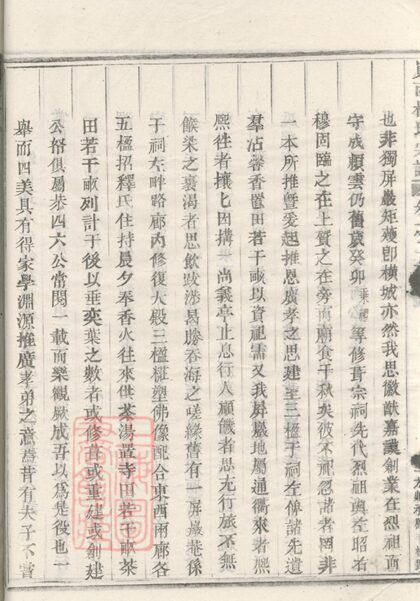 也非獨屏巖矩薙卽橫城亦然我思徽猷嘉謨創業在烈祖面
守成賴雲仍舊歲癸卯秉穆等修葺宗祠先代烈祖與左昭右
穆固臨之在上質之在旁而廟食千秋矣彼不祀忽諸者罔非
一本所推曁爰起推恩廣孝之思建室三楹于祠左俾諸先遺
羣沾馨香置田若干畝以資祀需又我屏巖地屬通衢來者熙
熙往者攘匕因搆一尚義亭止息行人顧饑者思充行旅不無
餱粱之裹渴者思飲跋涉曷勝吞海之嗟緣舊有一屏巖菴係
于祠左畔路廊內修復大殿三楹粧塑佛像配合東西兩廊各
五楹招釋氏住持晨夕奉香火往來供茶湯置寺田若干畝茶
田若干畝列計于後以垂奕葉之數者或修葺或重建或創建
公招俱屬恭四六公嘗閱一載而樂觀厥成吾以爲是役也一
舉而四美具有得家學淵源推廣孝弟之意焉昔有夫子不嘗